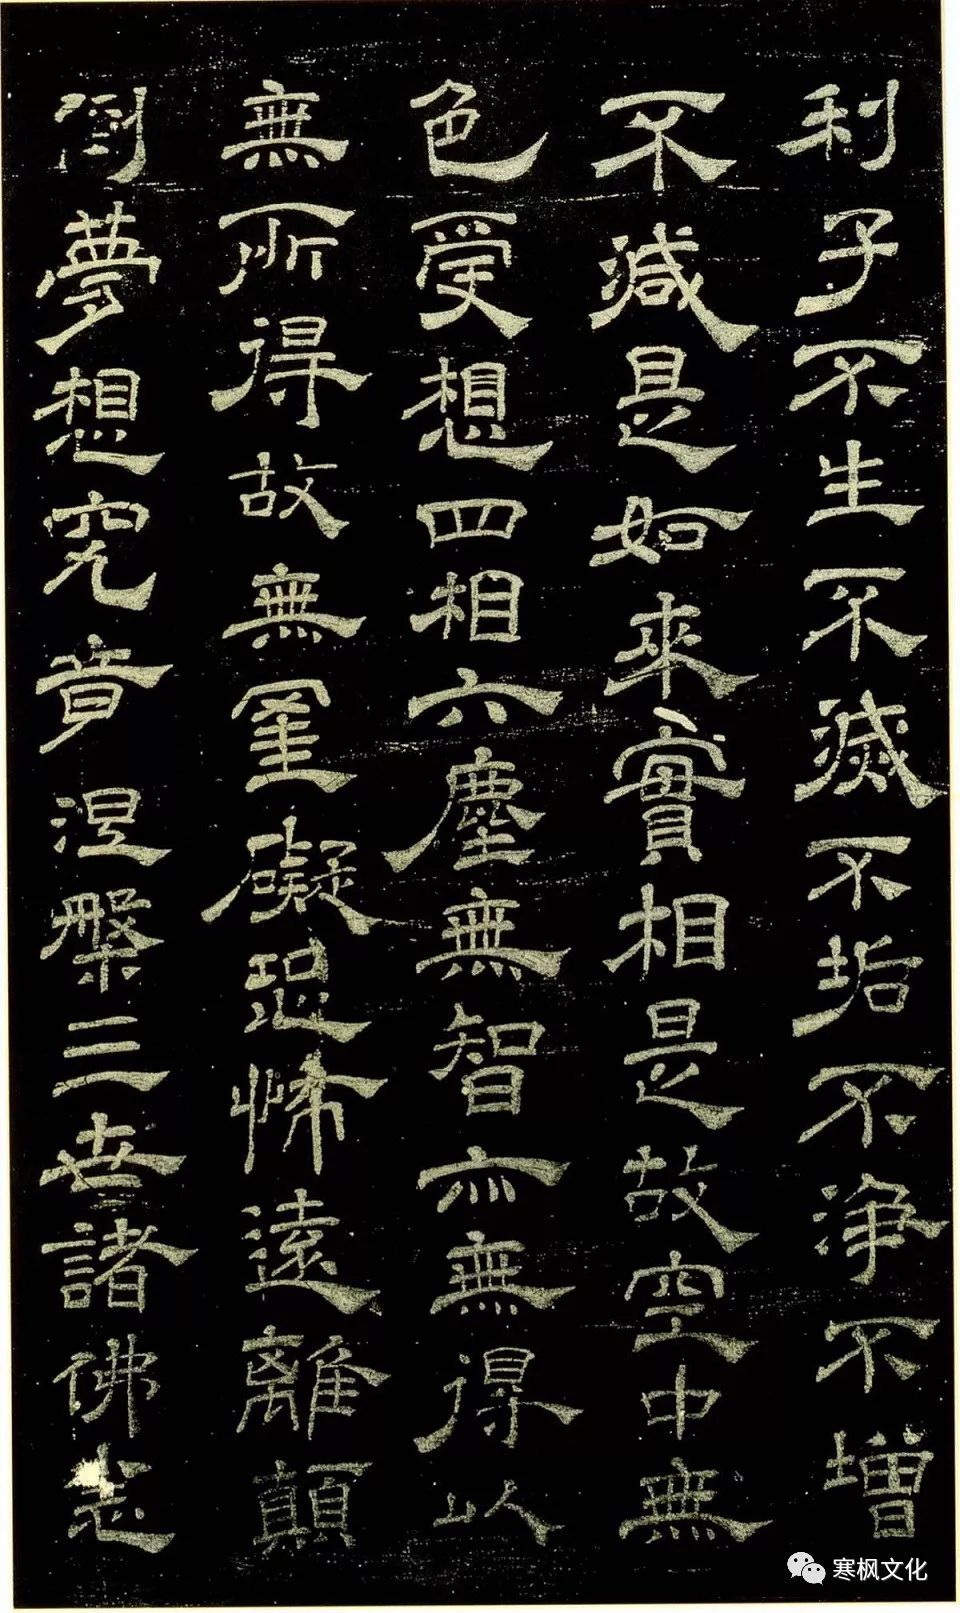 利子不生不滅不垢不净不增
不減是如來實相是故空中無
色受想四相六塵無智亦無得以
無所得故無罣礙恐怖遠離顛
倒夢想究竟涅槃三世諸佛志
寒枫文化